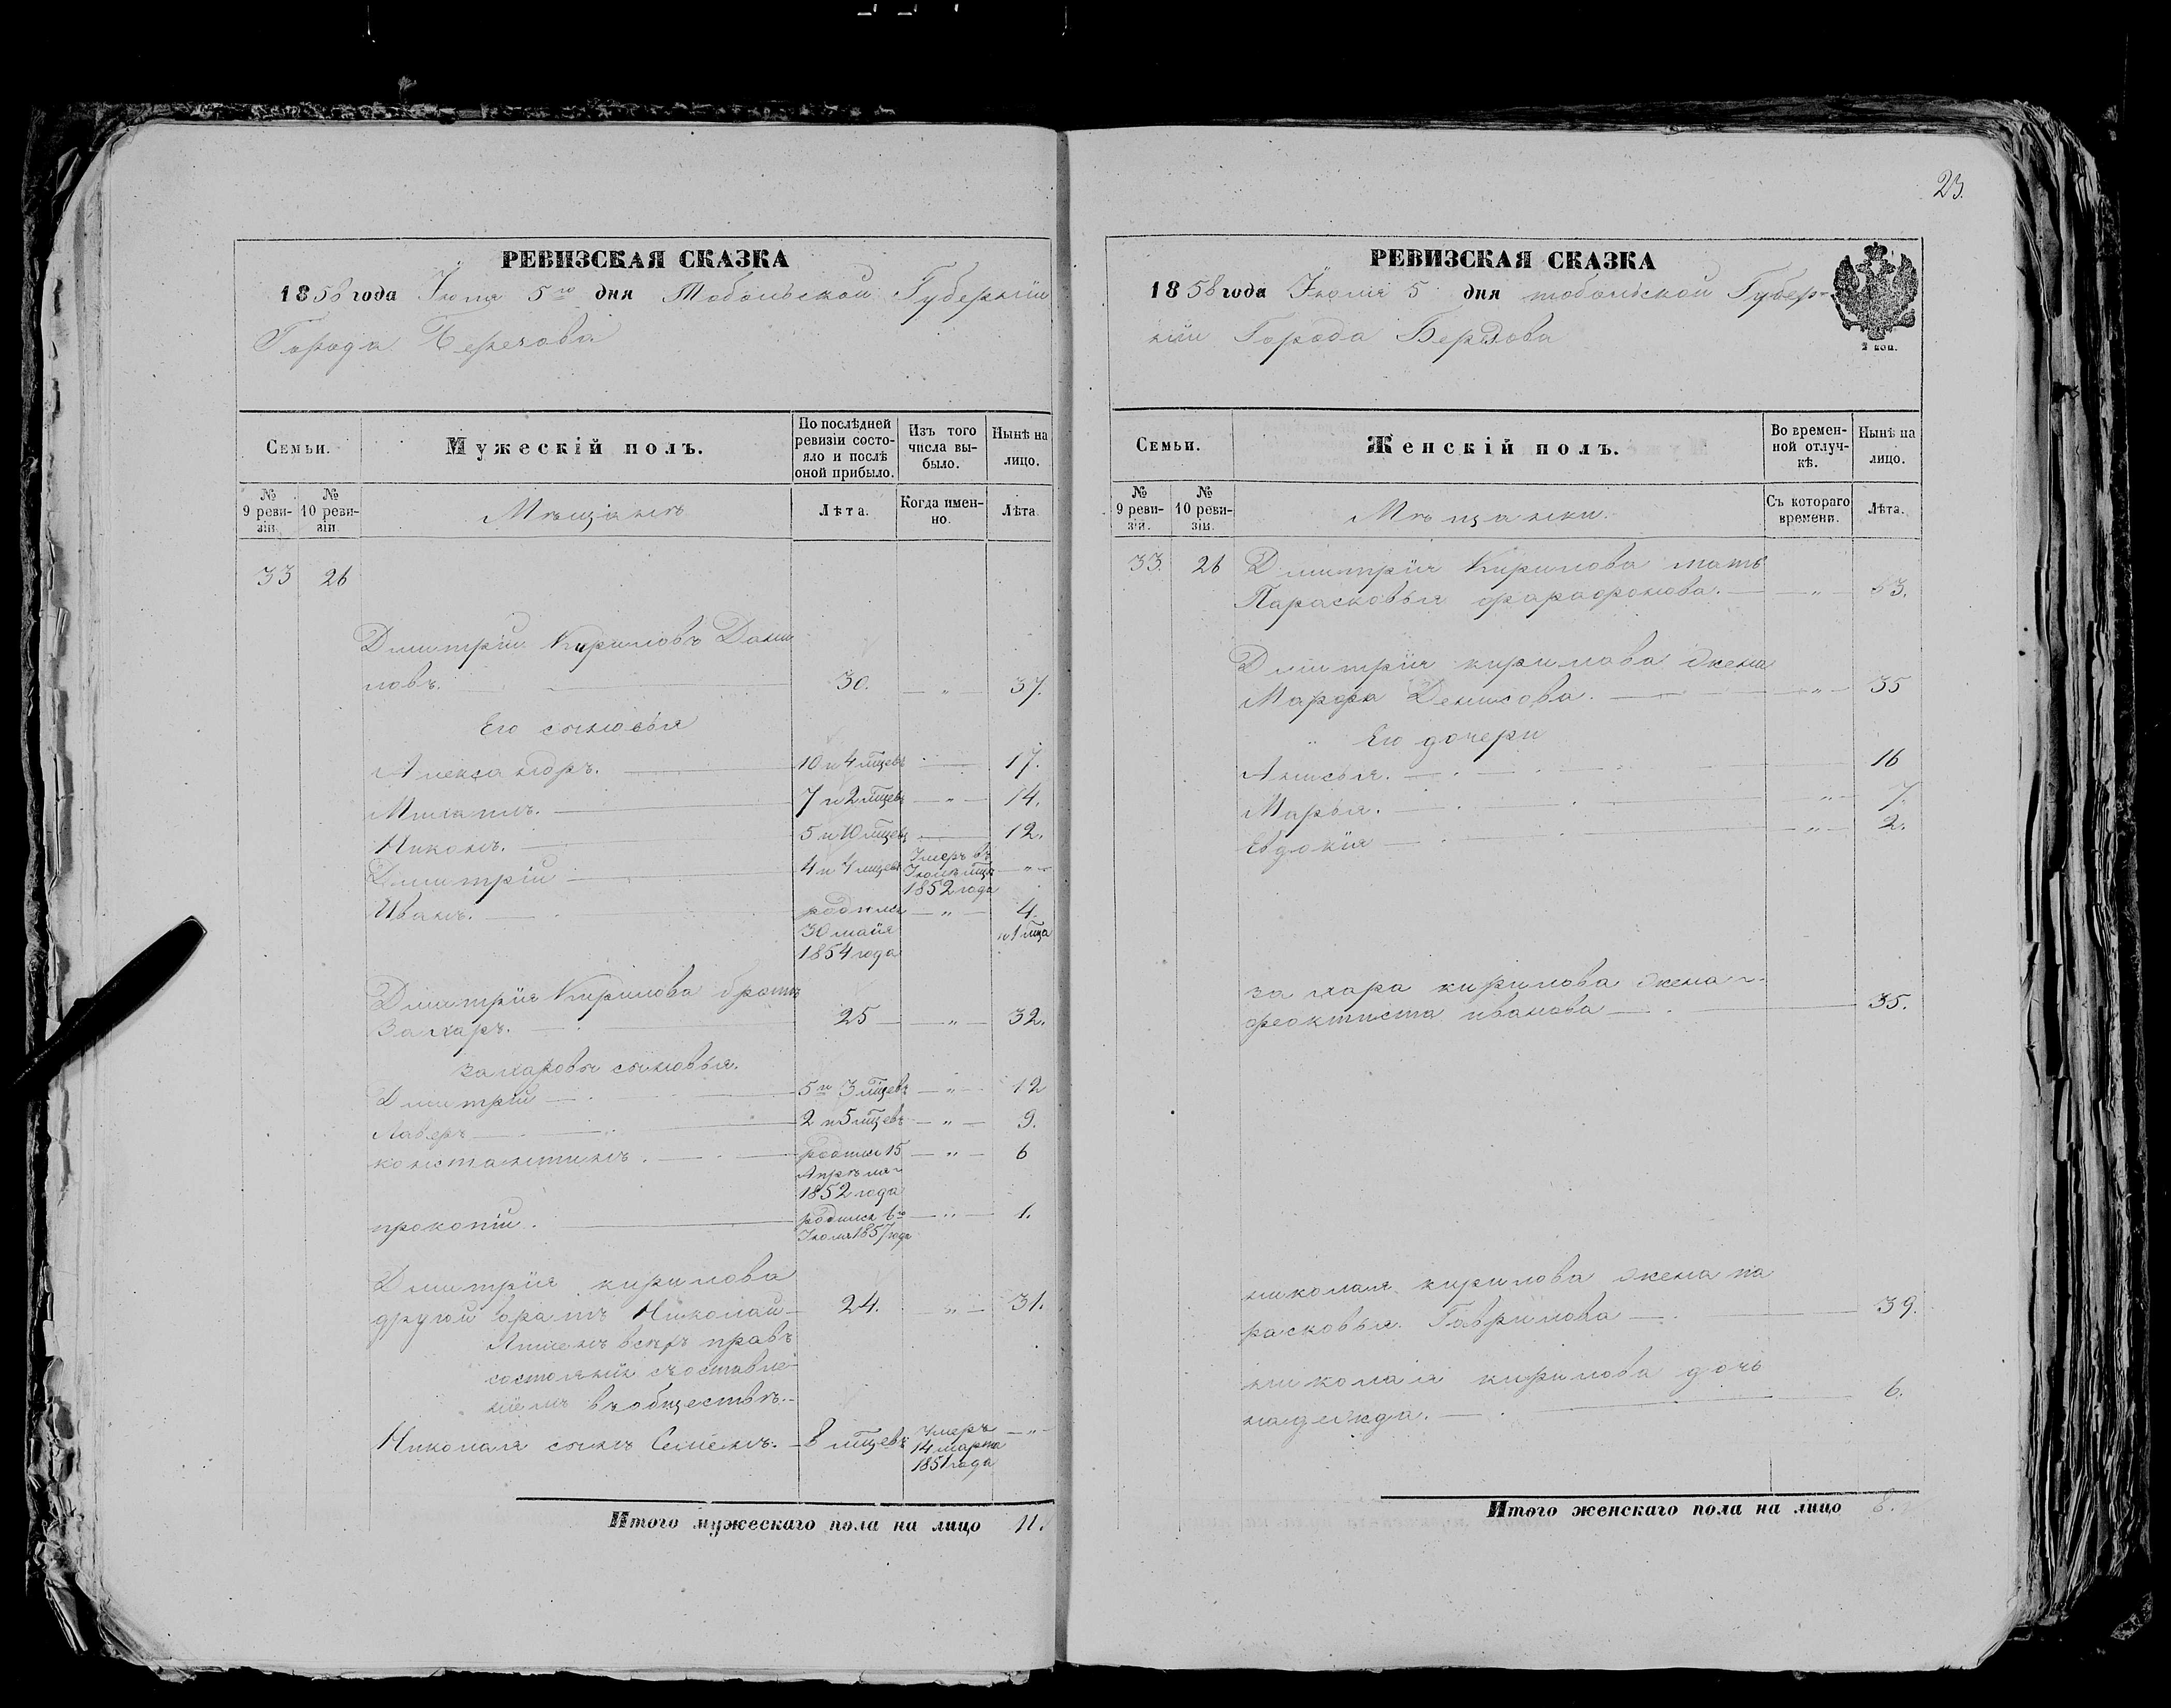 23.
РЕВИЗСКАЯ СКАЗКА
1858 года Іюня 5го дня Тобольской Губерніи
Города Березова
Семьи.
Мужескій полъ.
По послѣдней ревизіи состояло и послѣ оной прибыло.
Изъ того числа выбыло.
Нынѣ на лицо.
№ 9 ревизіи
№ 10 ревизіи
Мѣщанѣ
Лѣта.
Когда именно.
Лѣта
33 26
Дмитрій Кириловъ Дани
ловъ. 30. — „ — 37.
Его сыновья
Александръ. 10 и 4 мцевъ 17.
Михаилъ. 7 и 2 мцевъ — „ — 14.
Никонъ. 5 и 10 мцевъ 12.
Дмитрій 4 и 4 мцевъ Умеръ въ Іюнѣ мцѣ 1852 года — „ —
Иванъ. родился 30 майя 1854 года — „ — 4. и 1 мца
Дмитрія Кирилова братъ
Захаръ. 25 — „ — 32.
Захаровы сыновья.
Дмитрій 5 и 3 мцевъ — „ — 12
Лаверъ 2 и 5 мцевъ — „ — 9.
константинъ. родился 15 Апрѣля 1852 года — „ — 6
прокопій. родился 6го Іюля 1857 года — „ — 1.
Дмитрія кирилова
другой братъ Николай 24. — „ — 31.
Лишенъ всѣхъ правъ
состоянія съ оставле
ніемъ въ обществѣ.
Николая сынъ Семенъ. 8 мцевъ Умеръ 14 марта 1851 года — „ —
Итого мужескаго пола на лицо 11.
РЕВИЗСКАЯ СКАЗКА
1858 года Іюня 5 дня тобольской Губер-
ніи Города Березова
2 коп.
Семьи.
Женскій полъ.
Во временной отлучкѣ.
Нынѣ на лицо.
№ 9 ревизій.
№ 10 ревизіи.
Мѣщанки.
Съ котораго времени.
Лѣта.
33. 26 Дмитрія Кирилова мать
Парасковья фарафонова. — „ — 63.
Дмитрія кирилова жена
Марфа Денисова. — „ — 35
Его дочери
Анисья. 16
Марья. — „ — 7.
Евдокія — „ — 2.
захара кирилова жена
феоктиста иванова 35.
николая кирилова жена па
расковья. Гаврилова 39.
николая кирилова дочь
надежда. 6.
Итого женскаго пола на лицо 8.